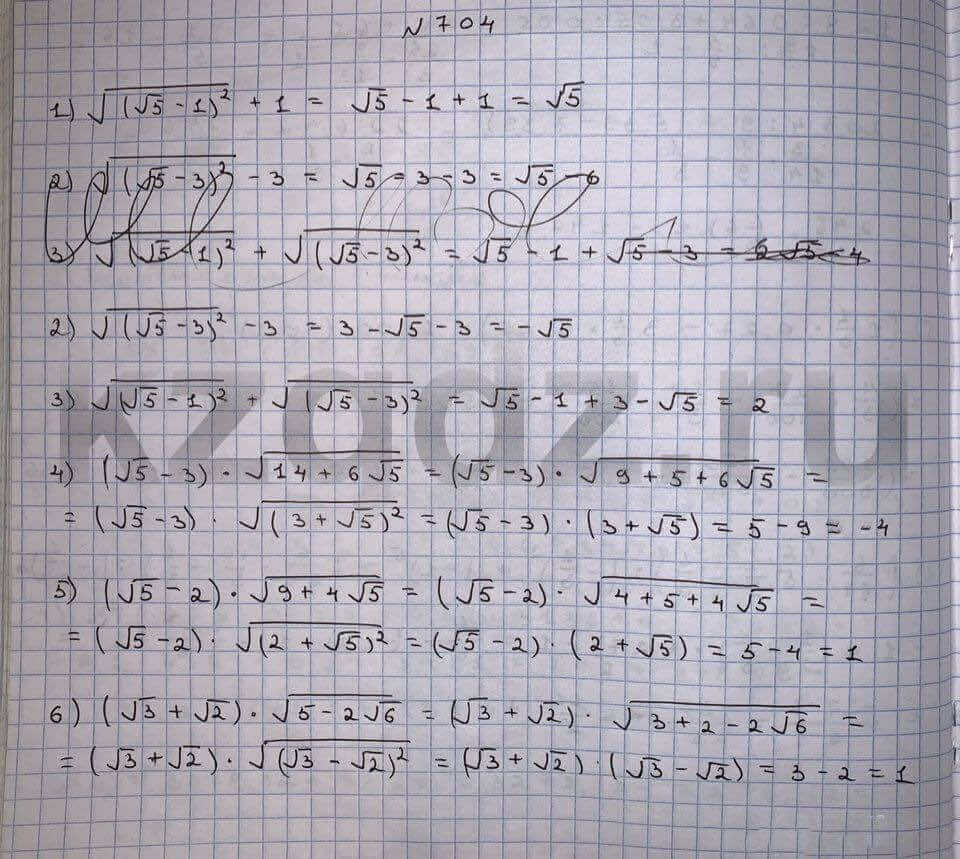 N 704
1) √(√5 - 1)² + 1 = √5 - 1 + 1 = √5
2) √(√5 - 3)² - 3 = √5 - 3 - 3 = √5 - 6
3) √(√5 - 1)² + √(√5 - 3)² = √5 - 1 + √5 - 3 = 2√5 - 4
2) √(√5 - 3)² - 3 = 3 - √5 - 3 = - √5
3) √(√5 - 1)² + √(√5 - 3)² = √5 - 1 + 3 - √5 = 2
4) (√5 - 3) · √14 + 6√5 = (√5 - 3) · √9 + 5 + 6√5 =
= (√5 - 3) · √(3 + √5)² = (√5 - 3) · (3 + √5) = 5 - 9 = -4
5) (√5 - 2) · √9 + 4√5 = (√5 - 2) · √4 + 5 + 4√5 =
= (√5 - 2) · √(2 + √5)² = (√5 - 2) · (2 + √5) = 5 - 4 = 1
6) (√3 + √2) · √5 - 2√6 = (√3 + √2) · √3 + 2 - 2√6 =
= (√3 + √2) · √(√3 - √2)² = (√3 + √2) · (√3 - √2) = 3 - 2 = 1
kzgdz.ru